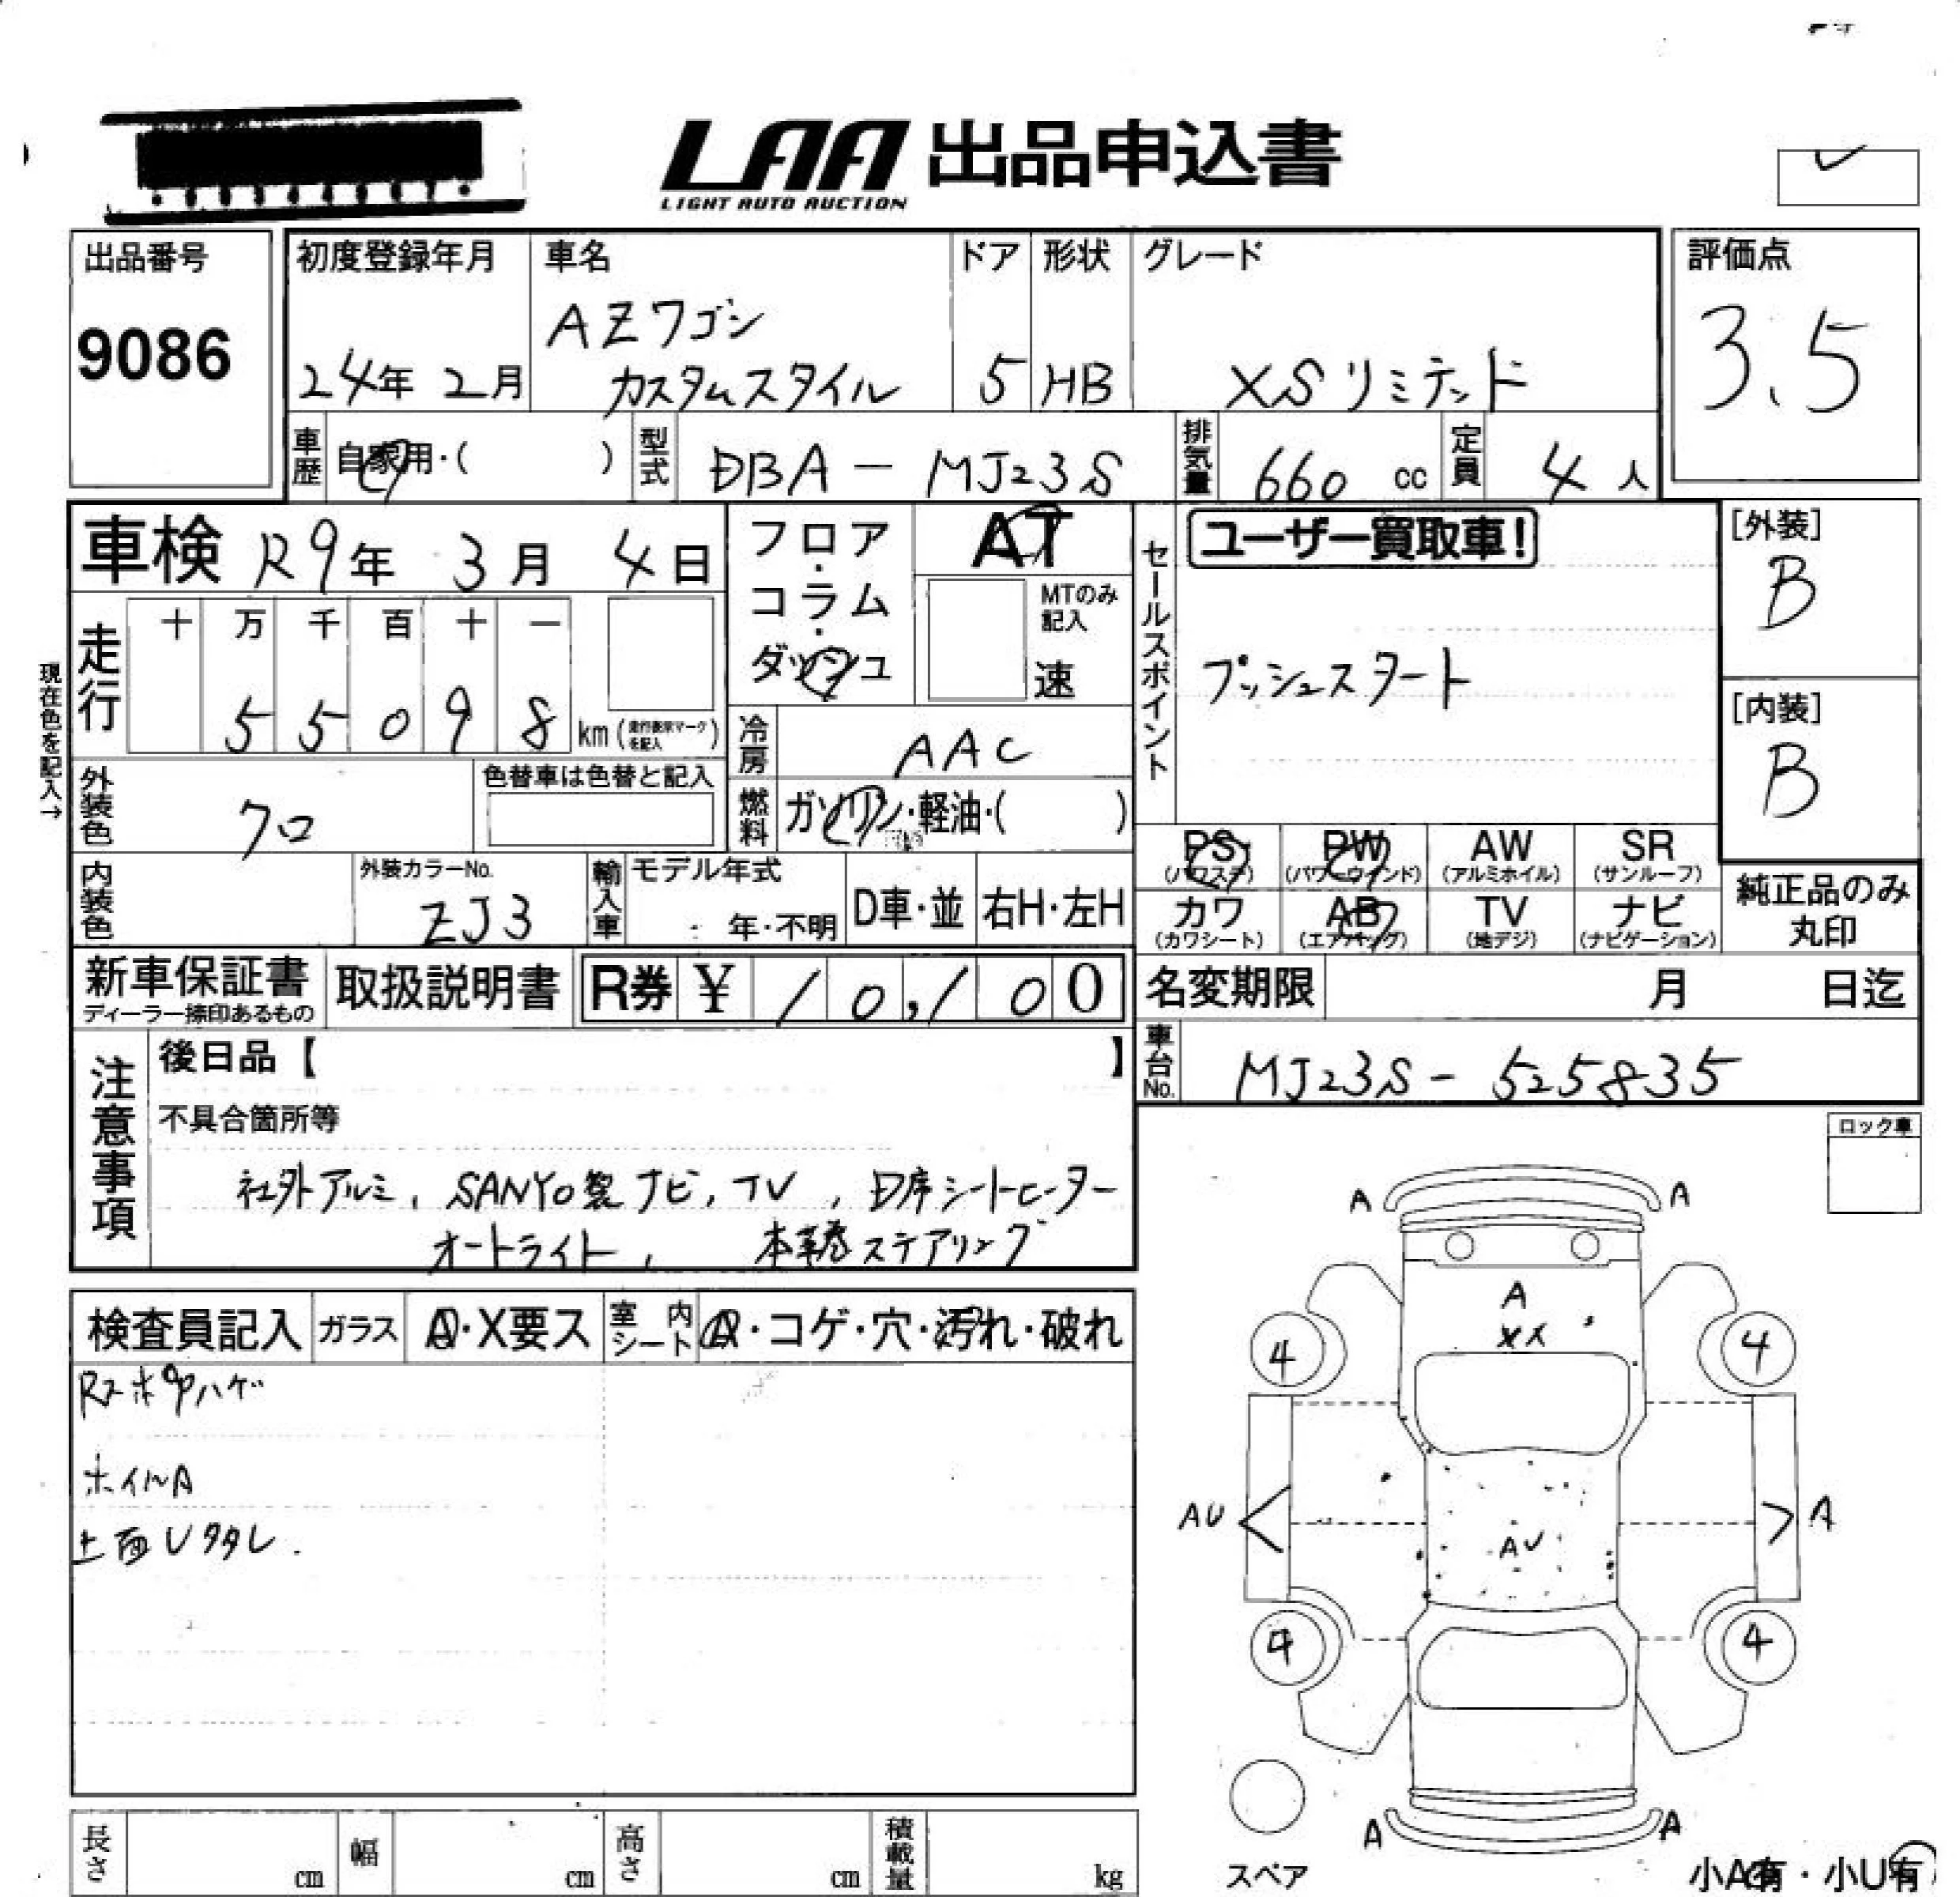 LAA 出品申込書
LIGHT AUTO AUCTION
出品番号
9086
初度登録年月
24年 2月
車名
AZワゴン
カスタムスタイル
ドア
5
形状
HB
グレード
XSリミテッド
評価点
3.5
車歴
自家用・( )
型式
DBA - MJ23S
排気量
660 cc
定員
4 人
車検 R9年 3月 4日
フロア・コラム・ダッシュ
AT
MTのみ
記入
速
セールスポイント
ユーザー買取車!
プッシュスタート
[外装]
B
[内装]
B
現在色を記入→
走行
十 万 千 百 十 一
5 5 0 9 8 km (走行表示マークを記入)
冷房
AAC
外装色
クロ
色替車は色替と記入
燃料
ガソリン・軽油・( )
PS
(パワステ)
PW
(パワーウインド)
AW
(アルミホイル)
SR
(サンルーフ)
カワ
(カワシート)
AB
(エアバッグ)
TV
(地デジ)
ナビ
(ナビゲーション)
純正品のみ
丸印
内装色
外装カラーNo.
ZJ3
輸入車
モデル年式
年・不明
D車・並
右H・左H
新車保証書
ディーラー捺印あるもの
取扱説明書
R券 ¥ 10,100
名変期限 月 日迄
車台No.
MJ23S - 525835
注意事項
後日品【 】
不具合箇所等
社外アルミ, SANYO製ナビ, TV , D席シートヒーター
オートライト, 本革巻ステアリング
ロック車
検査員記入
ガラス
A・X要ス
室内シート
A・コゲ・穴・汚れ・破れ
ホイルA
上面Uタタレ.
A A
A
XX
4 4
AU A
AU
4 4
A A
スペア
小A有・小U有
長さ cm
幅 cm
高さ cm
積載量 kg